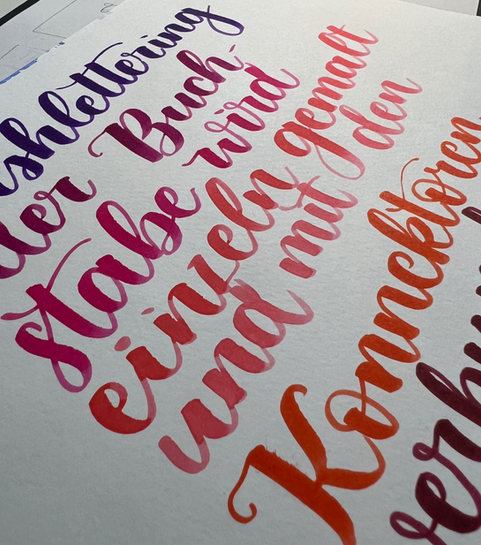 shlettering
der Buch-
stabe wird
einzeln gemalt
und mit den
Konnecktoren